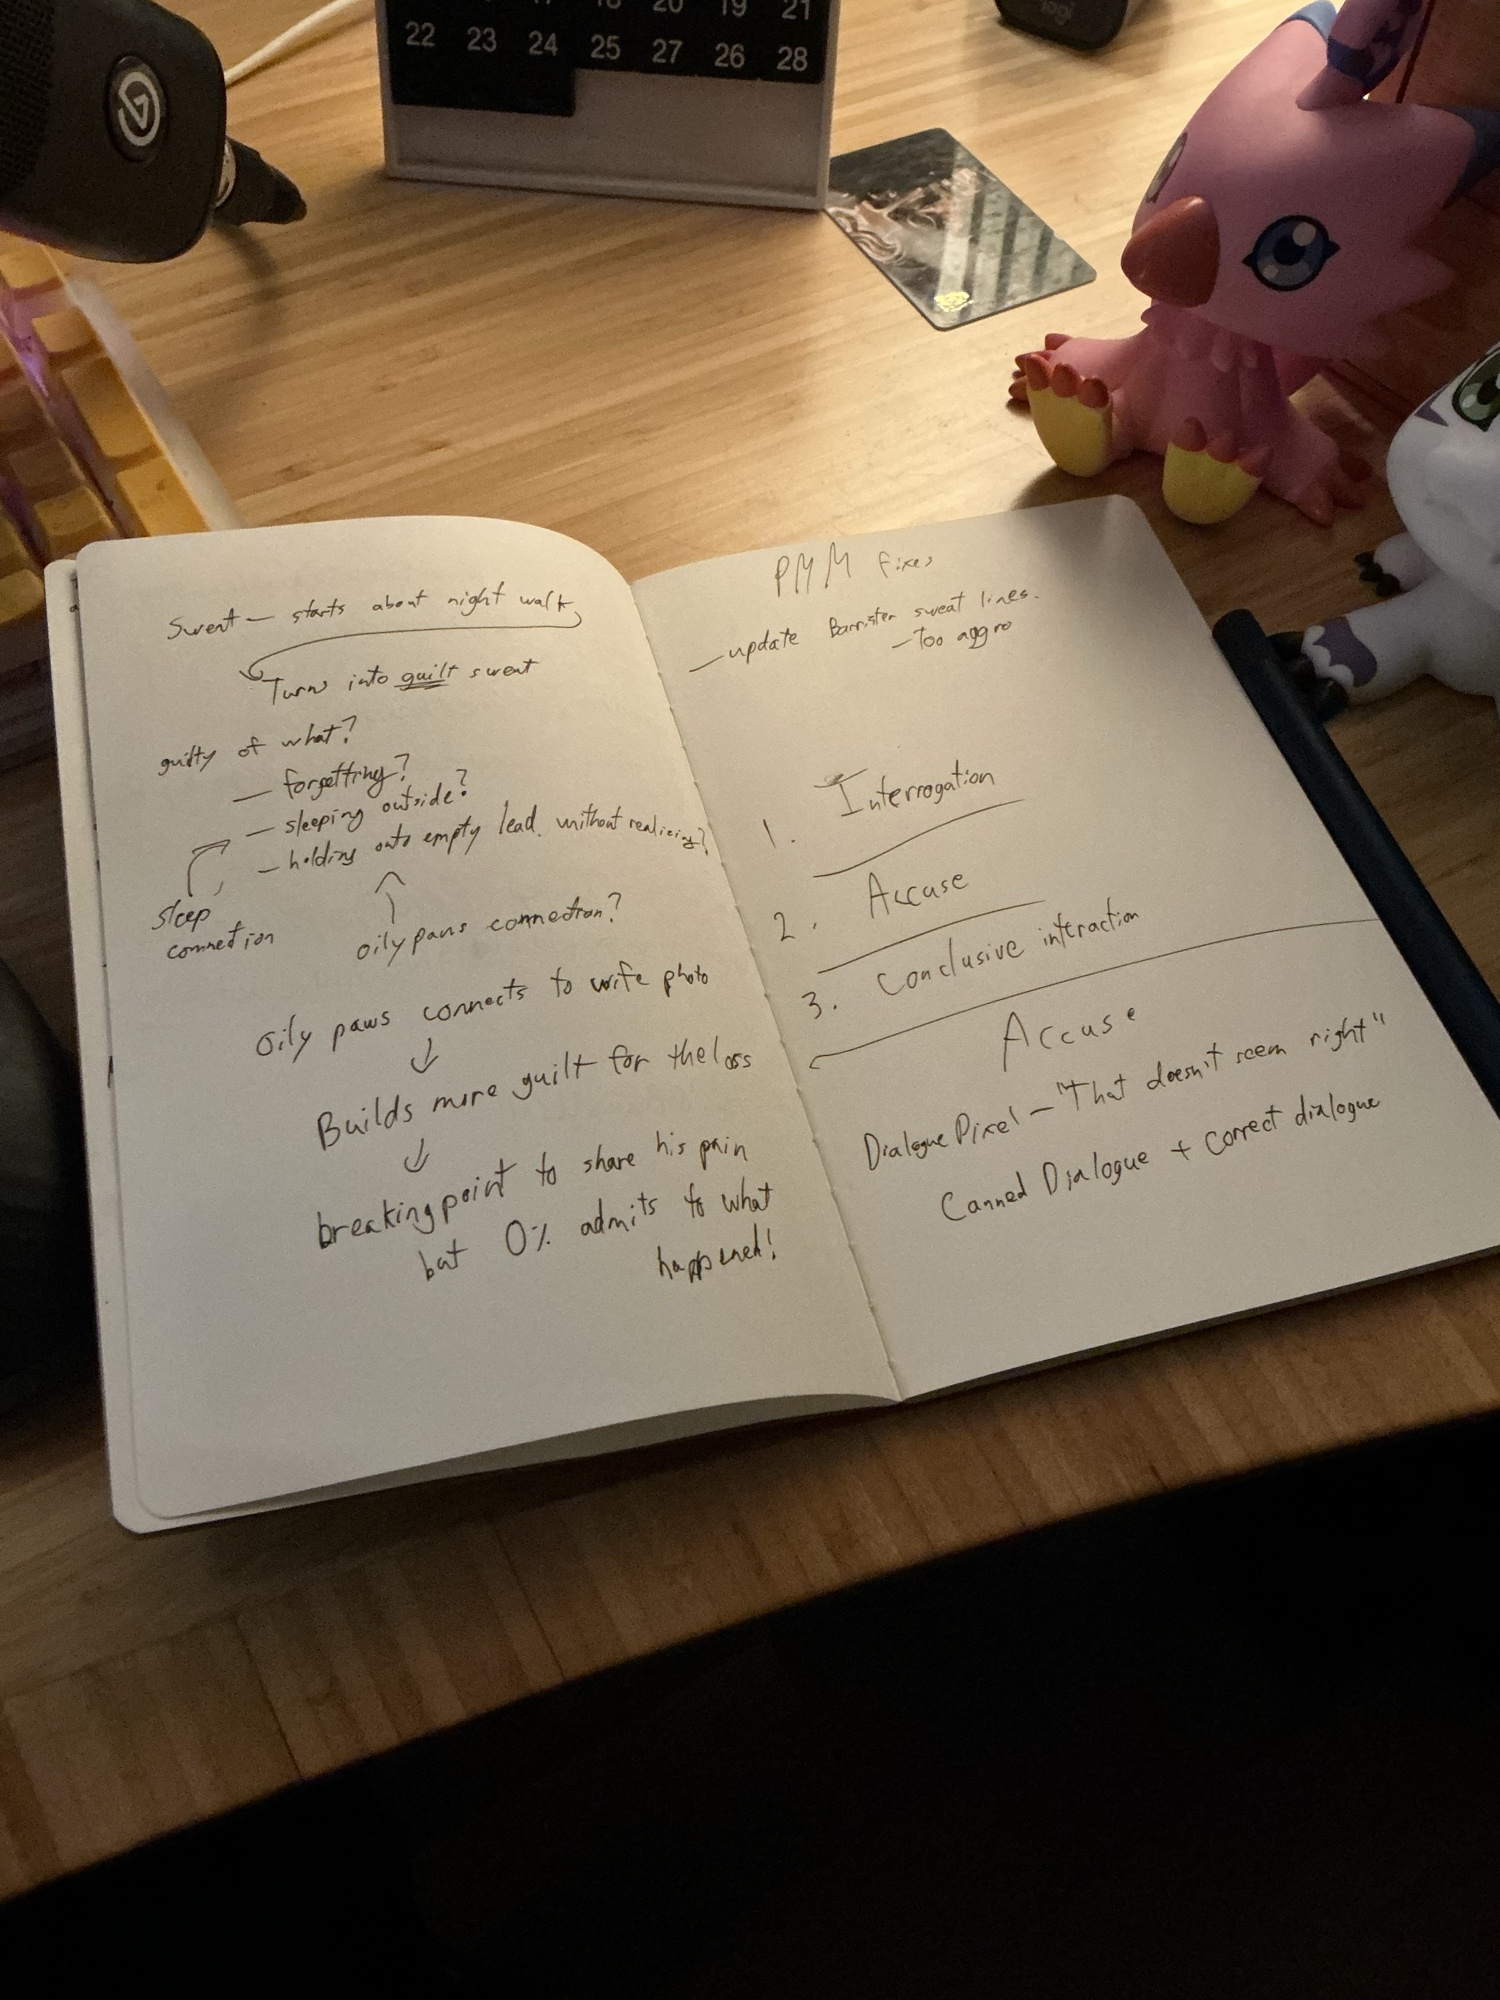 17 18 20 19 21
22 23 24 25 27 26 28
logi
Sweat — starts about night walk
Turns into guilt sweat
guilty of what?
— forgetting?
— sleeping outside?
— holding onto empty lead without realizing?
sleep
connection
oily paws connection?
Oily paws connects to wife photo
Builds more guilt for the loss
breaking point to share his pain
but 0% admits to what
happened!
PMM fixes
— update Barrister sweat lines.
— Too aggro
1. Interrogation
2. Accuse
3. Conclusive interaction
Accuse
Dialogue Pixel — "That doesn't seem right"
Canned Dialogue + correct dialogue